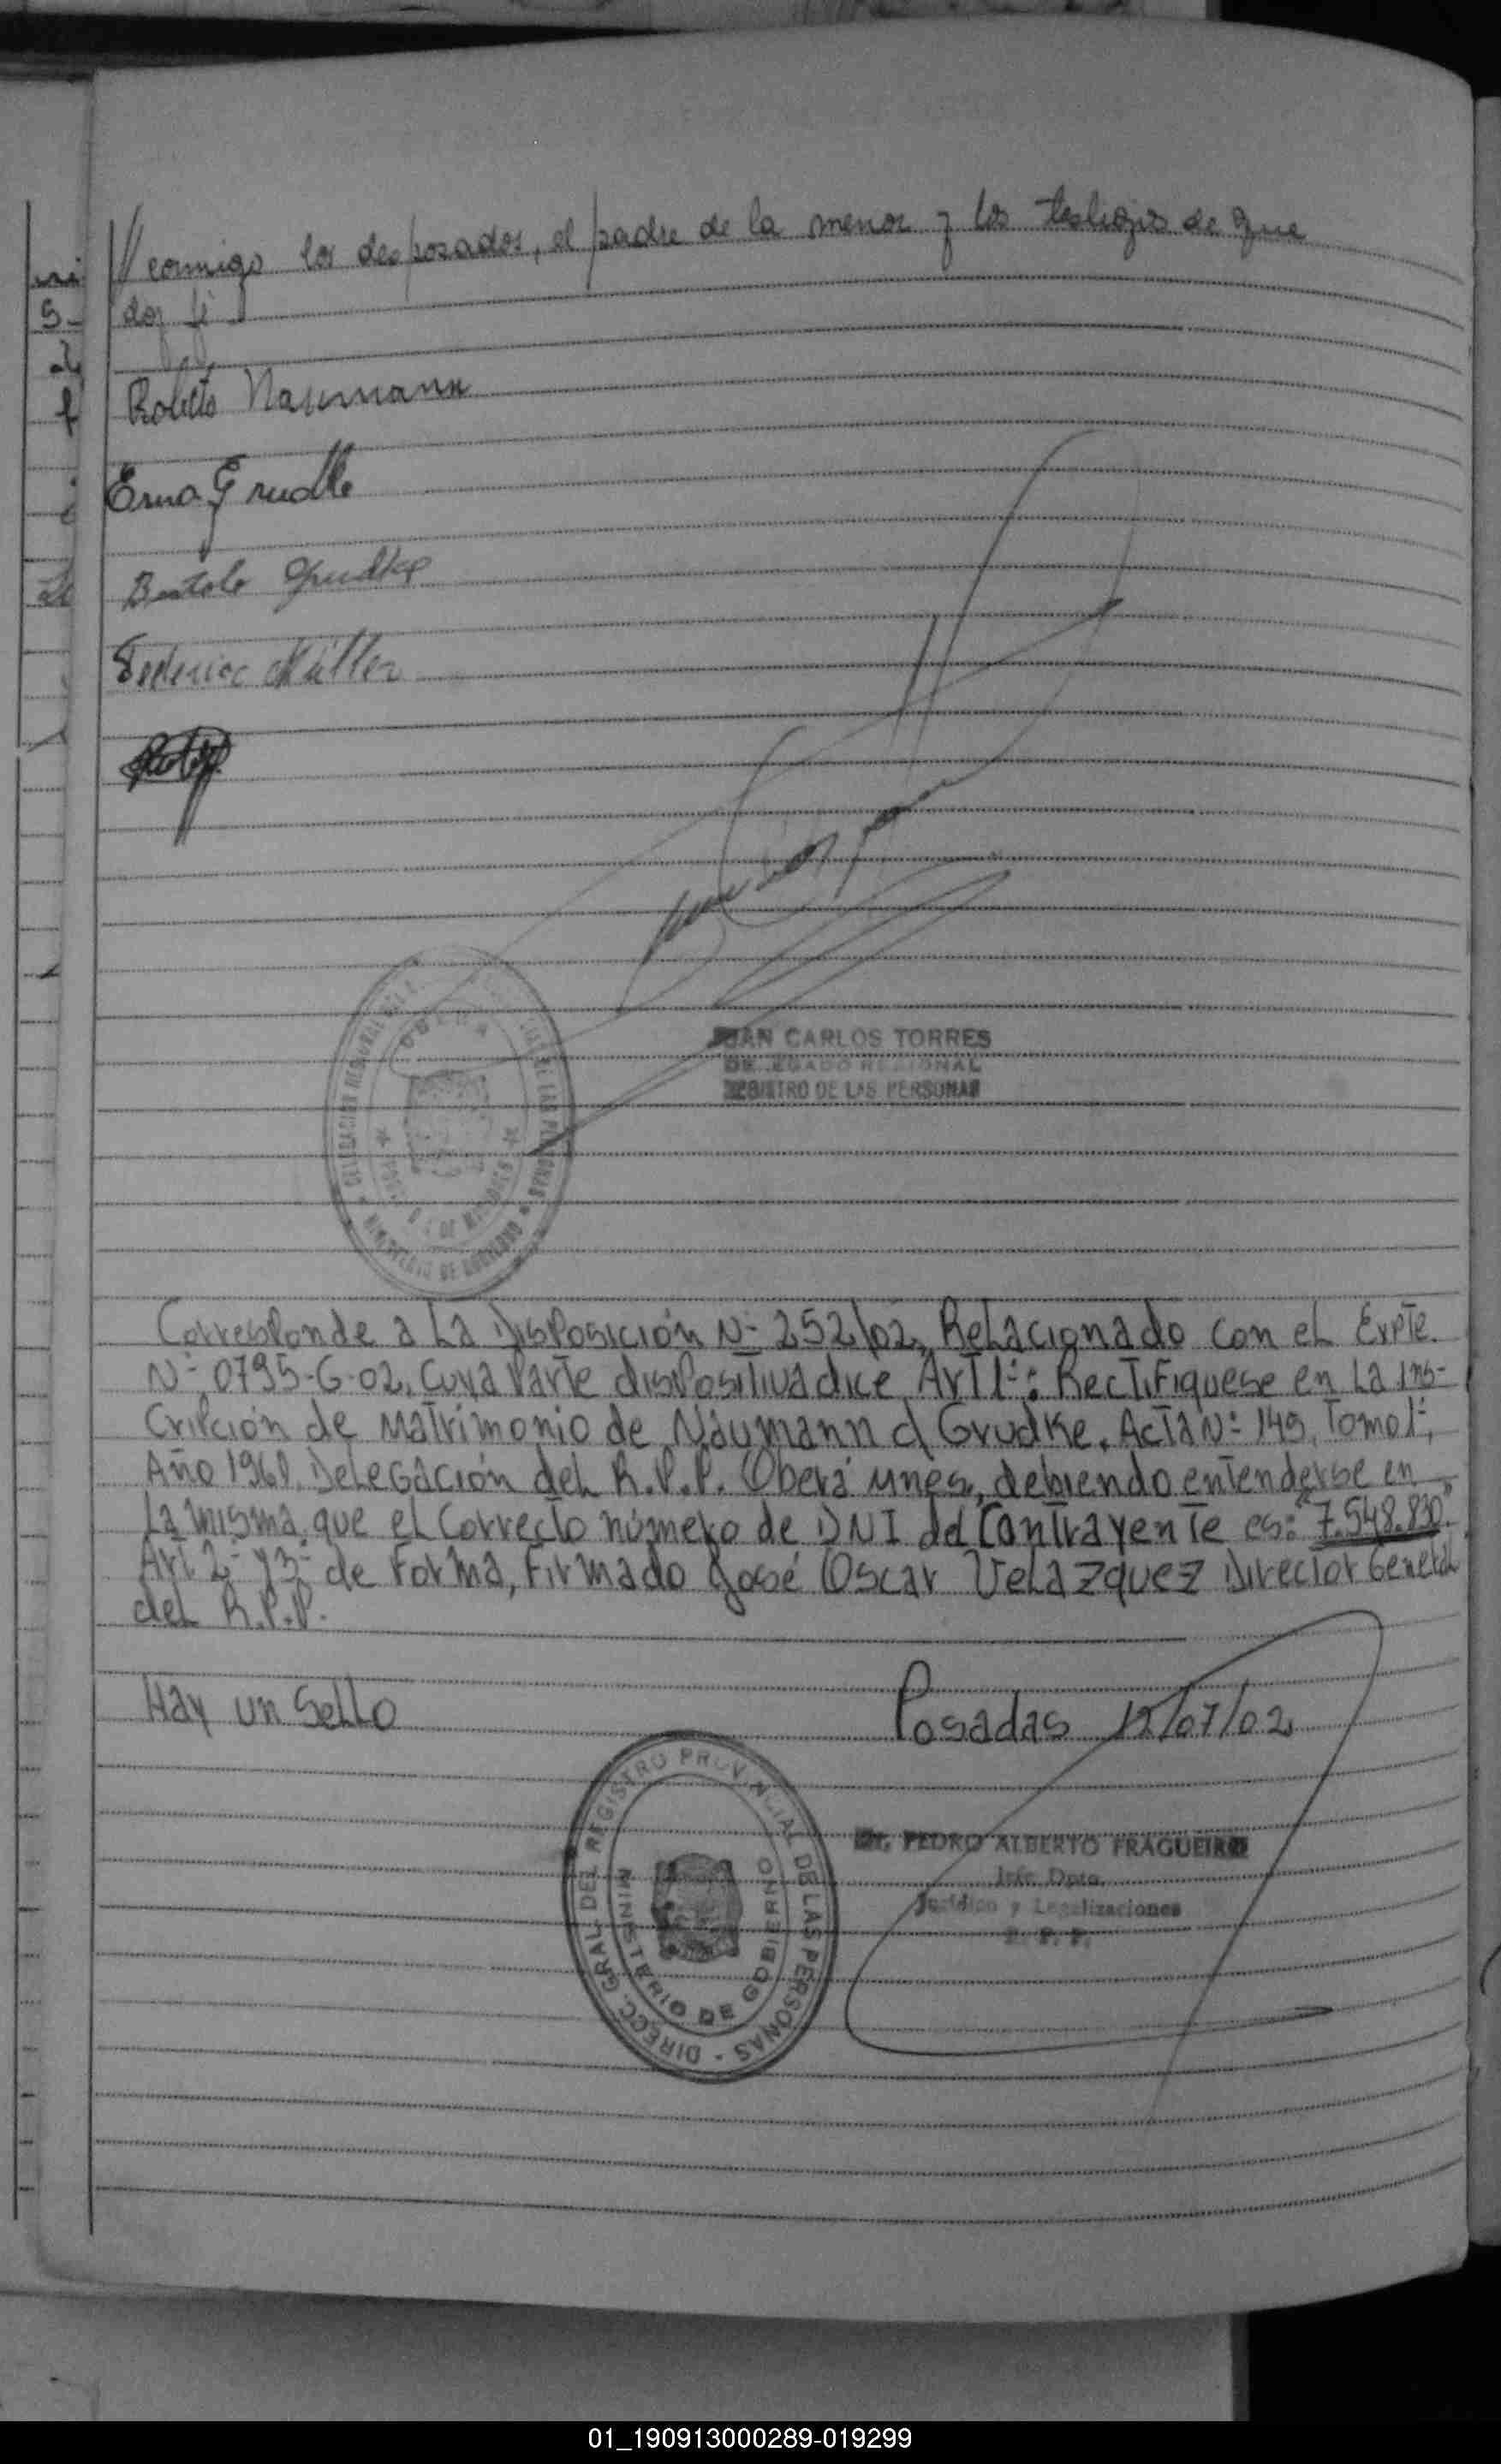 conmigo los desposados, el padre de la menor y los testigos de que
doy fé
Roberto Naumann
Erna Grudke
Bertolo Grudke
Federico Müller
JUAN CARLOS TORRES
DELEGADO REGIONAL
REGISTRO DE LAS PERSONAS
DELEGACION REGIONAL DEL R. DE LAS PERSONAS
MINISTERIO DE GOBIERNO
OBERA
DE MISIONES
Corresponde a La Disposición Nº 252/02, Relacionado con el Expte.
Nº 0795-G-02, Cuya Parte dispositiva dice Art 1º: Rectifiquese en La Ins-
Cripción de Matrimonio de Naumann c/ Grudke. Acta Nº 149, Tomo 1º,
Año 1968, Delegación del R.P.P. Oberá mnes, debiendo entenderse en
La misma que el Correcto número de DNI del Contrayente es: "7.548.830".
Art 2º y 3º de Forma, Firmado José Oscar Velazquez Director General
del R.P.P.
Hay un Sello
Posadas 12/07/02
DIRECC. GRAL. DEL REGISTRO PROVINCIAL DE LAS PERSONAS -
MINISTERIO DE GOBIERNO
Dr. PEDRO ALBERTO FRAGUEIRO
Jefe Dpto.
Jurídico y Legalizaciones
R. P. P.
01_190913000289-019299